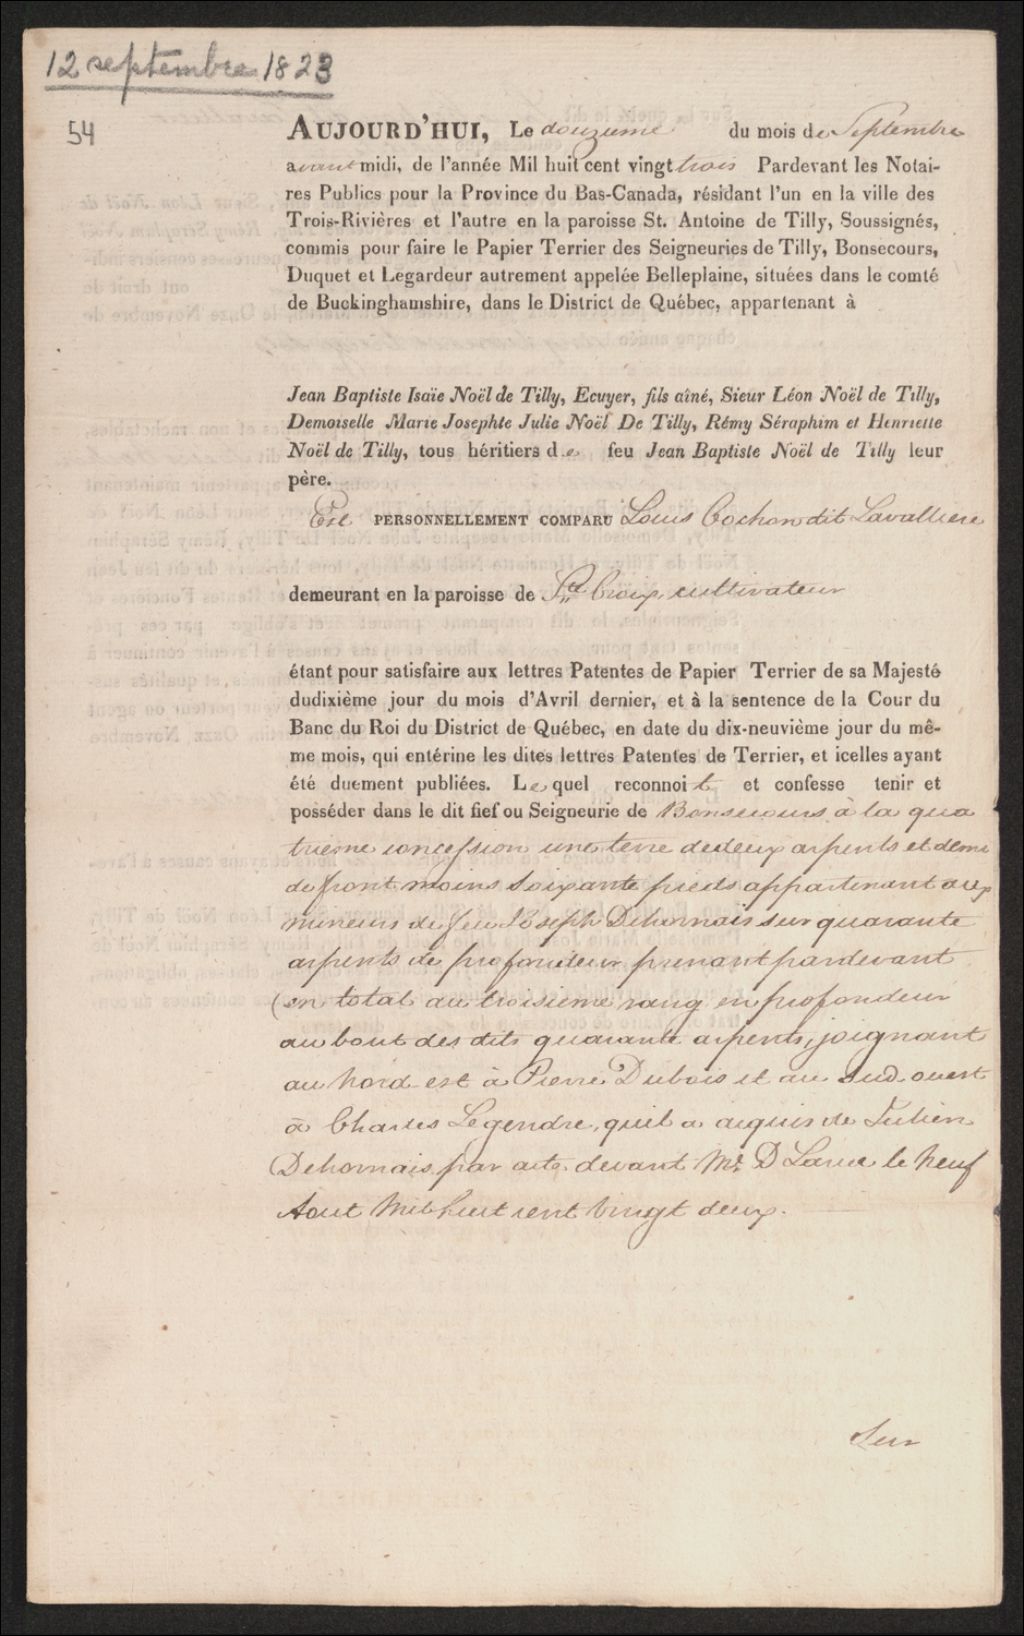 12 septembre 1823
54
AUJOURD'HUI, Le douzieme du mois de Septembre
avant midi, de l'année Mil huit cent vingt trois Pardevant les Notai-
res Publics pour la Province du Bas-Canada, résidant l'un en la ville des
Trois-Rivières et l'autre en la paroisse St. Antoine de Tilly, Soussignés,
commis pour faire le Papier Terrier des Seigneuries de Tilly, Bonsecours,
Duquet et Legardeur autrement appelée Belleplaine, situées dans le comté
de Buckinghamshire, dans le District de Québec, appartenant à
Jean Baptiste Isaïe Noël de Tilly, Ecuyer, fils aîné, Sieur Léon Noël de Tilly,
Demoiselle Marie Josephte Julie Noël De Tilly, Rémy Séraphim et Henriette
Noël de Tilly, tous héritiers de feu Jean Baptiste Noël de Tilly leur
père.
Est PERSONNELLEMENT COMPARU Louis Cochon dit Lavalliere
demeurant en la paroisse de Ste Croix, cultivateur
étant pour satisfaire aux lettres Patentes de Papier Terrier de sa Majesté
dudixième jour du mois d'Avril dernier, et à la sentence de la Cour du
Banc du Roi du District de Québec, en date du dix-neuvième jour du mê-
me mois, qui entérine les dites lettres Patentes de Terrier, et icelles ayant
été duement publiées. Lequel reconnoit et confesse tenir et
posséder dans le dit fief ou Seigneurie de Bonsecours à la qua
trieme concession une terre de deux arpents et demi
de front moins soixante pieds appartenant aux
mineurs de feu Joseph Dehornais sur quarante
arpents de profondeur prenant pardevant
en total au troisieme rang en profondeur
au bout des dits quarante arpents, joignant
au Nord est à Pierre Dubois et au sud ouest
à Charles Legendre, quil a acquis de Julien
Dehornais par acte devant Mr. D Larue le Neuf
Aout Mil huit cent vingt deux.
Sur